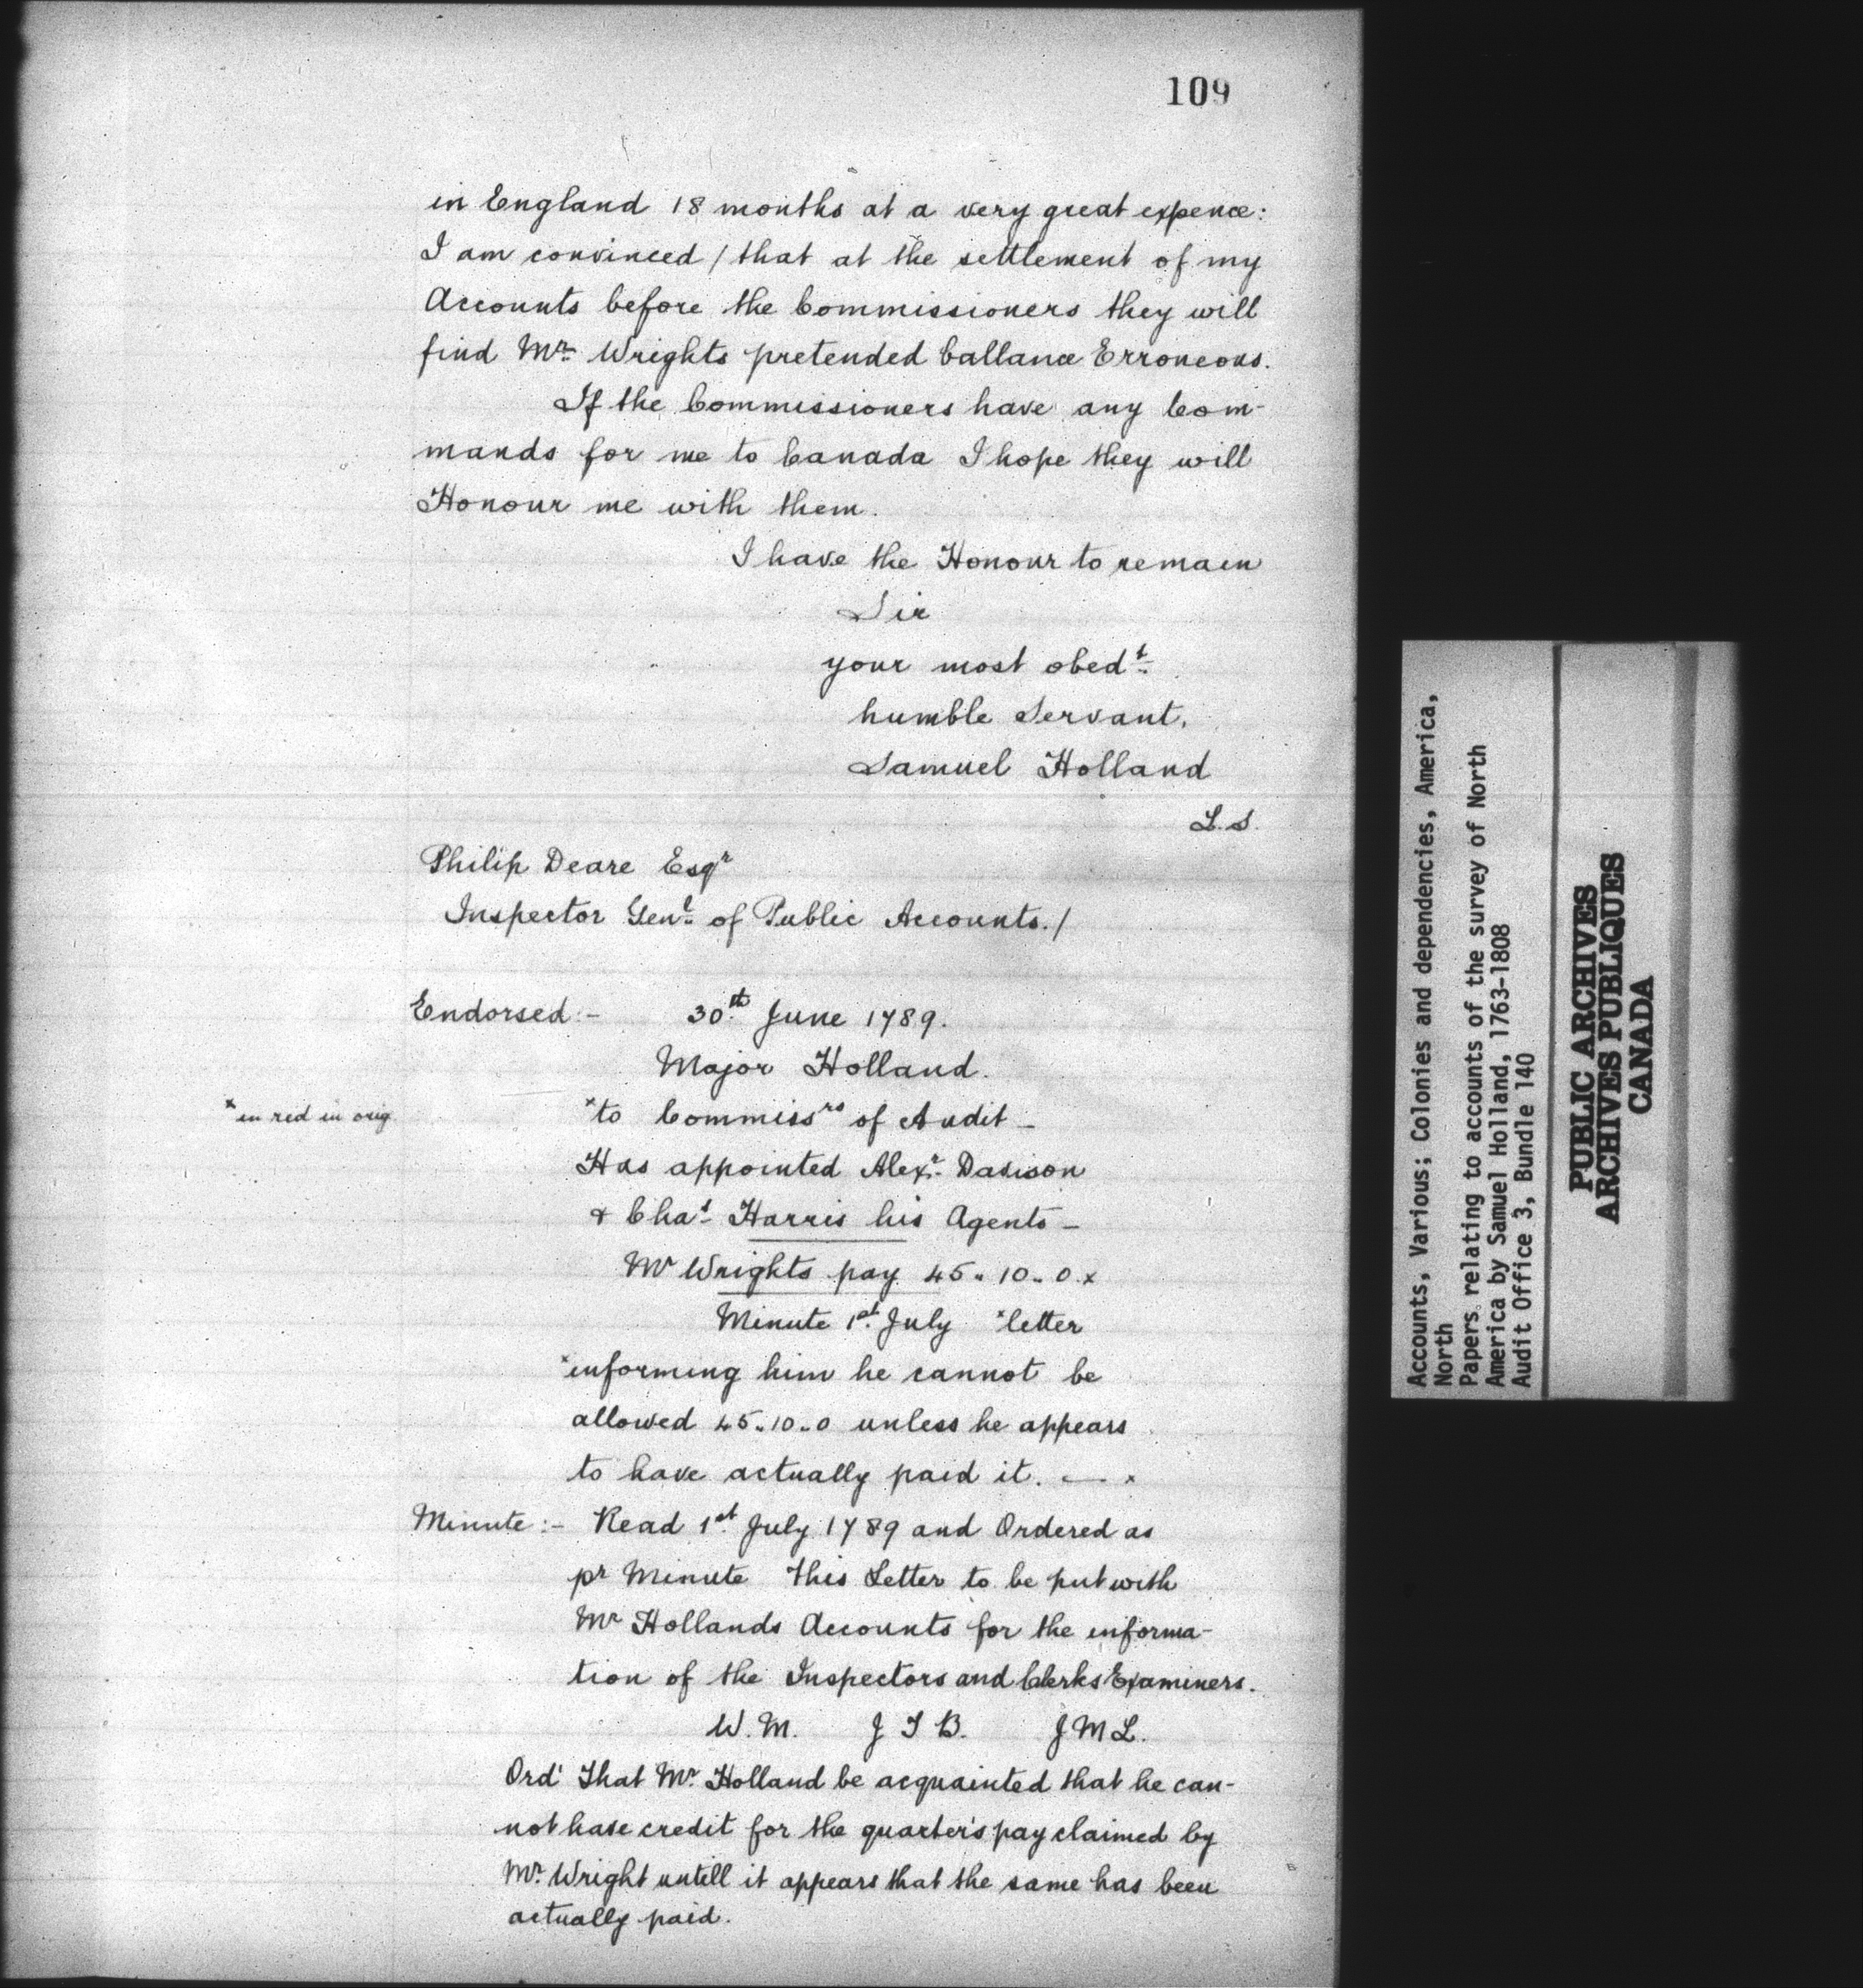 109
in England 18 months at a very great expence:
I am convinced / that at the settlement of my
Accounts before the Commissioners they will
find Mr. Wrights pretended ballance Erroneous.
If the Commissioners have any Com-
mands for me to Canada I hope they will
Honour me with them.
I have the Honour to remain
Sir
your most obedt.
humble Servant.
Samuel Holland
L.S.
Philip Deare Esqr
Inspector Genl. of Public Accounts./
Endorsed:- 30th. June 1789.
Major Holland.
x in red in orig.
x to Commissrs of Audit -
Has appointed Alexr. Davison
& Chas. Harris his Agents -
Mr Wrights pay 45. 10. 0. x
Minute 1st. July x letter
x informing him he cannot be
allowed 45.10.0 unless he appears
to have actually paid it. — . x
Minute:- Read 1st. July 1789 and Ordered as
pr Minute this Letter to be put with
Mr Hollands Accounts for the informa-
tion of the Inspectors and Clerks Examiners.
W. M. J T B. J M L.
Ord' That Mr. Holland be acquainted that he can-
not have credit for the quarter's pay claimed by
Mr. Wright untill it appears that the same has been
actually paid.
Accounts, Various; Colonies and dependencies, America,
North
Papers relating to accounts of the survey of North
America by Samuel Holland, 1763-1808
Audit Office 3, Bundle 140
PUBLIC ARCHIVES
ARCHIVES PUBLIQUES
CANADA